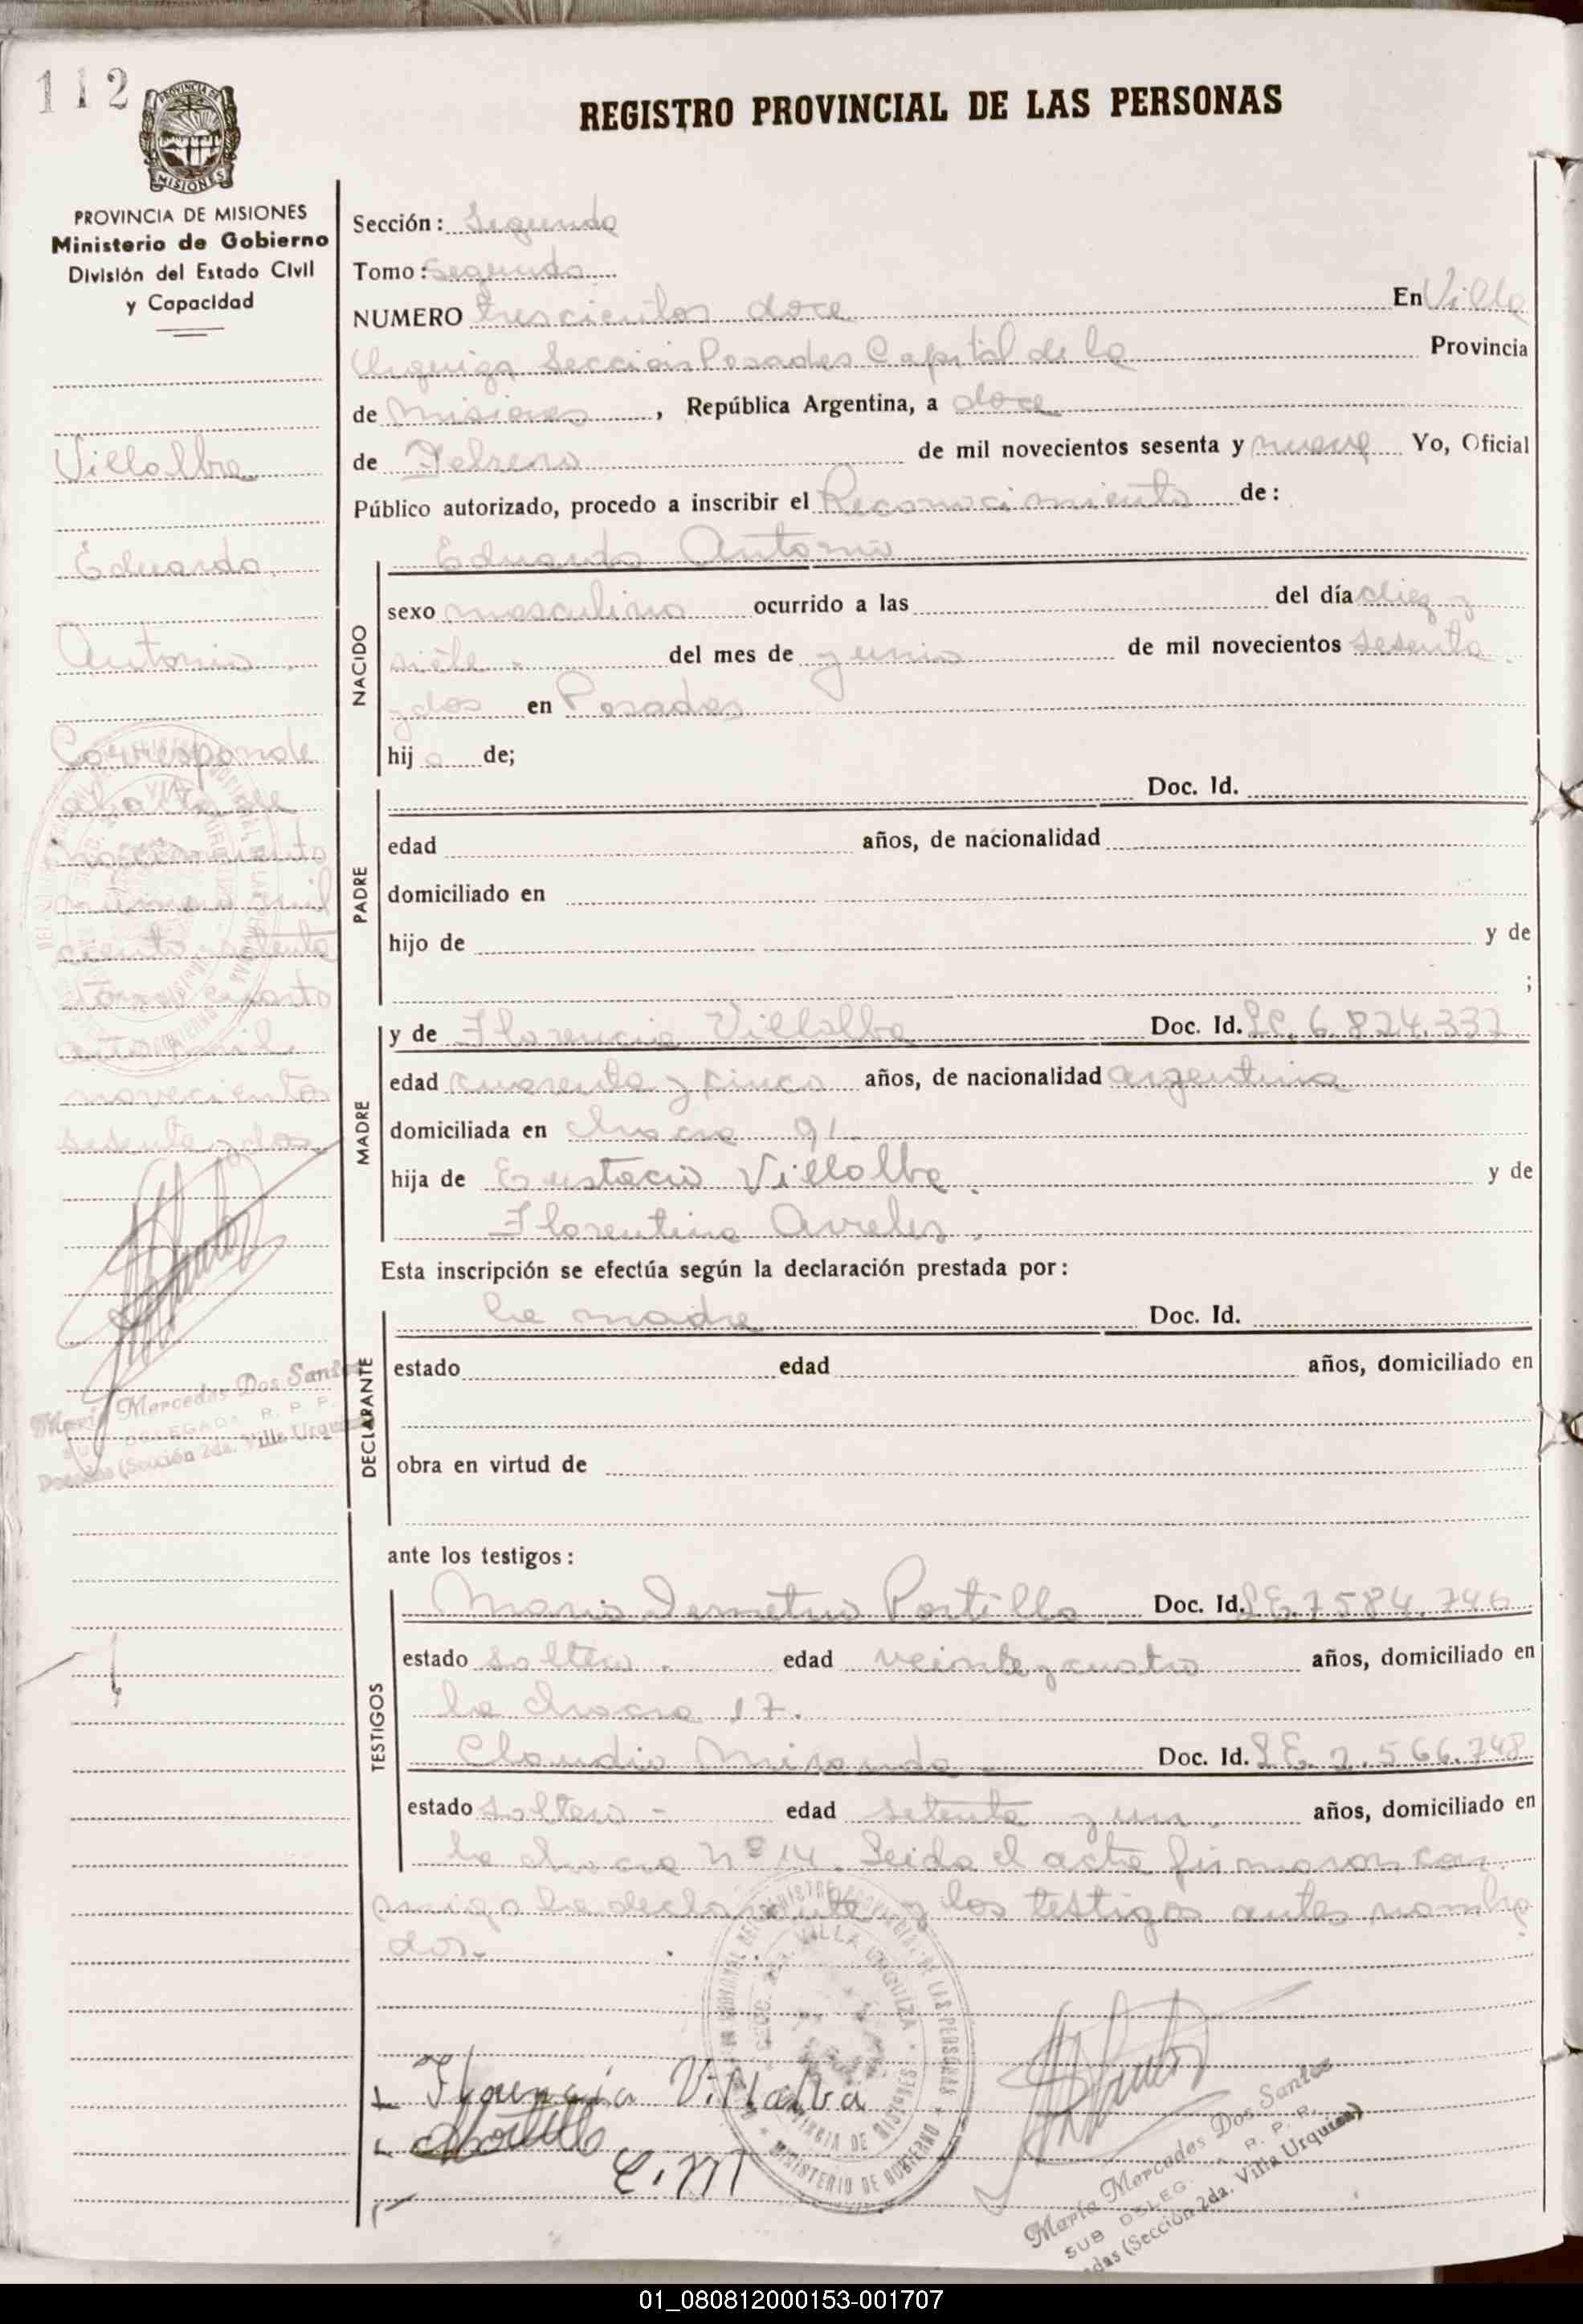 112
REGISTRO PROVINCIAL DE LAS PERSONAS
PROVINCIA DE MISIONES
MISIONES
PROVINCIA DE MISIONES
Ministerio de Gobierno
División del Estado Civil
y Capacidad
Villalba
Eduardo
Antonio.
Corresponde
nacimiento
número mil
ciento setenta
tomo cuarto
año mil
novecientos
sesenta y dos
María Mercedes Dos Santos
SUB DELEGADA R. P. P.
Posadas (Sección 2da. Villa Urquiza)
Sección: Segunda
Tomo: Segundo
NUMERO trescientos doce En Villa
Urquiza Sección Posadas Capital de la Provincia
de Misiones, República Argentina, a doce
de Febrero de mil novecientos sesenta y nueve Yo, Oficial
Público autorizado, procedo a inscribir el Reconocimiento de:
NACIDO
Eduardo Antonio
sexo masculino ocurrido a las del día diez y
siete. del mes de junio de mil novecientos sesenta
y dos en Posadas
hijo de;
PADRE
Doc. Id.
edad años, de nacionalidad
domiciliado en
hijo de y de
;
MADRE
y de Florencia Villalba Doc. Id. LC. 6.824.332
edad cuarenta y cinco años, de nacionalidad argentina
domiciliada en chacra 91.
hija de Eustacio Villalba. y de
Florentina Avreles.
Esta inscripción se efectúa según la declaración prestada por:
DECLARANTE
la madre Doc. Id.
estado edad años, domiciliado en
obra en virtud de
ante los testigos:
TESTIGOS
Mario Demetrio Portillo Doc. Id. LE. 7584.746
estado soltero. edad veinte y cuatro años, domiciliado en
la chacra 17.
Claudio Miranda. Doc. Id. LE. 2.566.748
estado soltero - edad setenta y un. años, domiciliado en
la chacra nº 14. Leida el acta firmaron con
migo la declarante y los testigos antes nombra
dos.-
REGISTRO PROVINCIAL DE LAS PERSONAS
VILLA URQUIZA
PROVINCIA DE MISIONES
MINISTERIO DE GOBIERNO
Florencia Villalba
Portillo
C. M
María Mercedes Dos Santos
SUB DELEG. R. P. P.
adas (Sección 2da. Villa Urquiza)
01_080812000153-001707